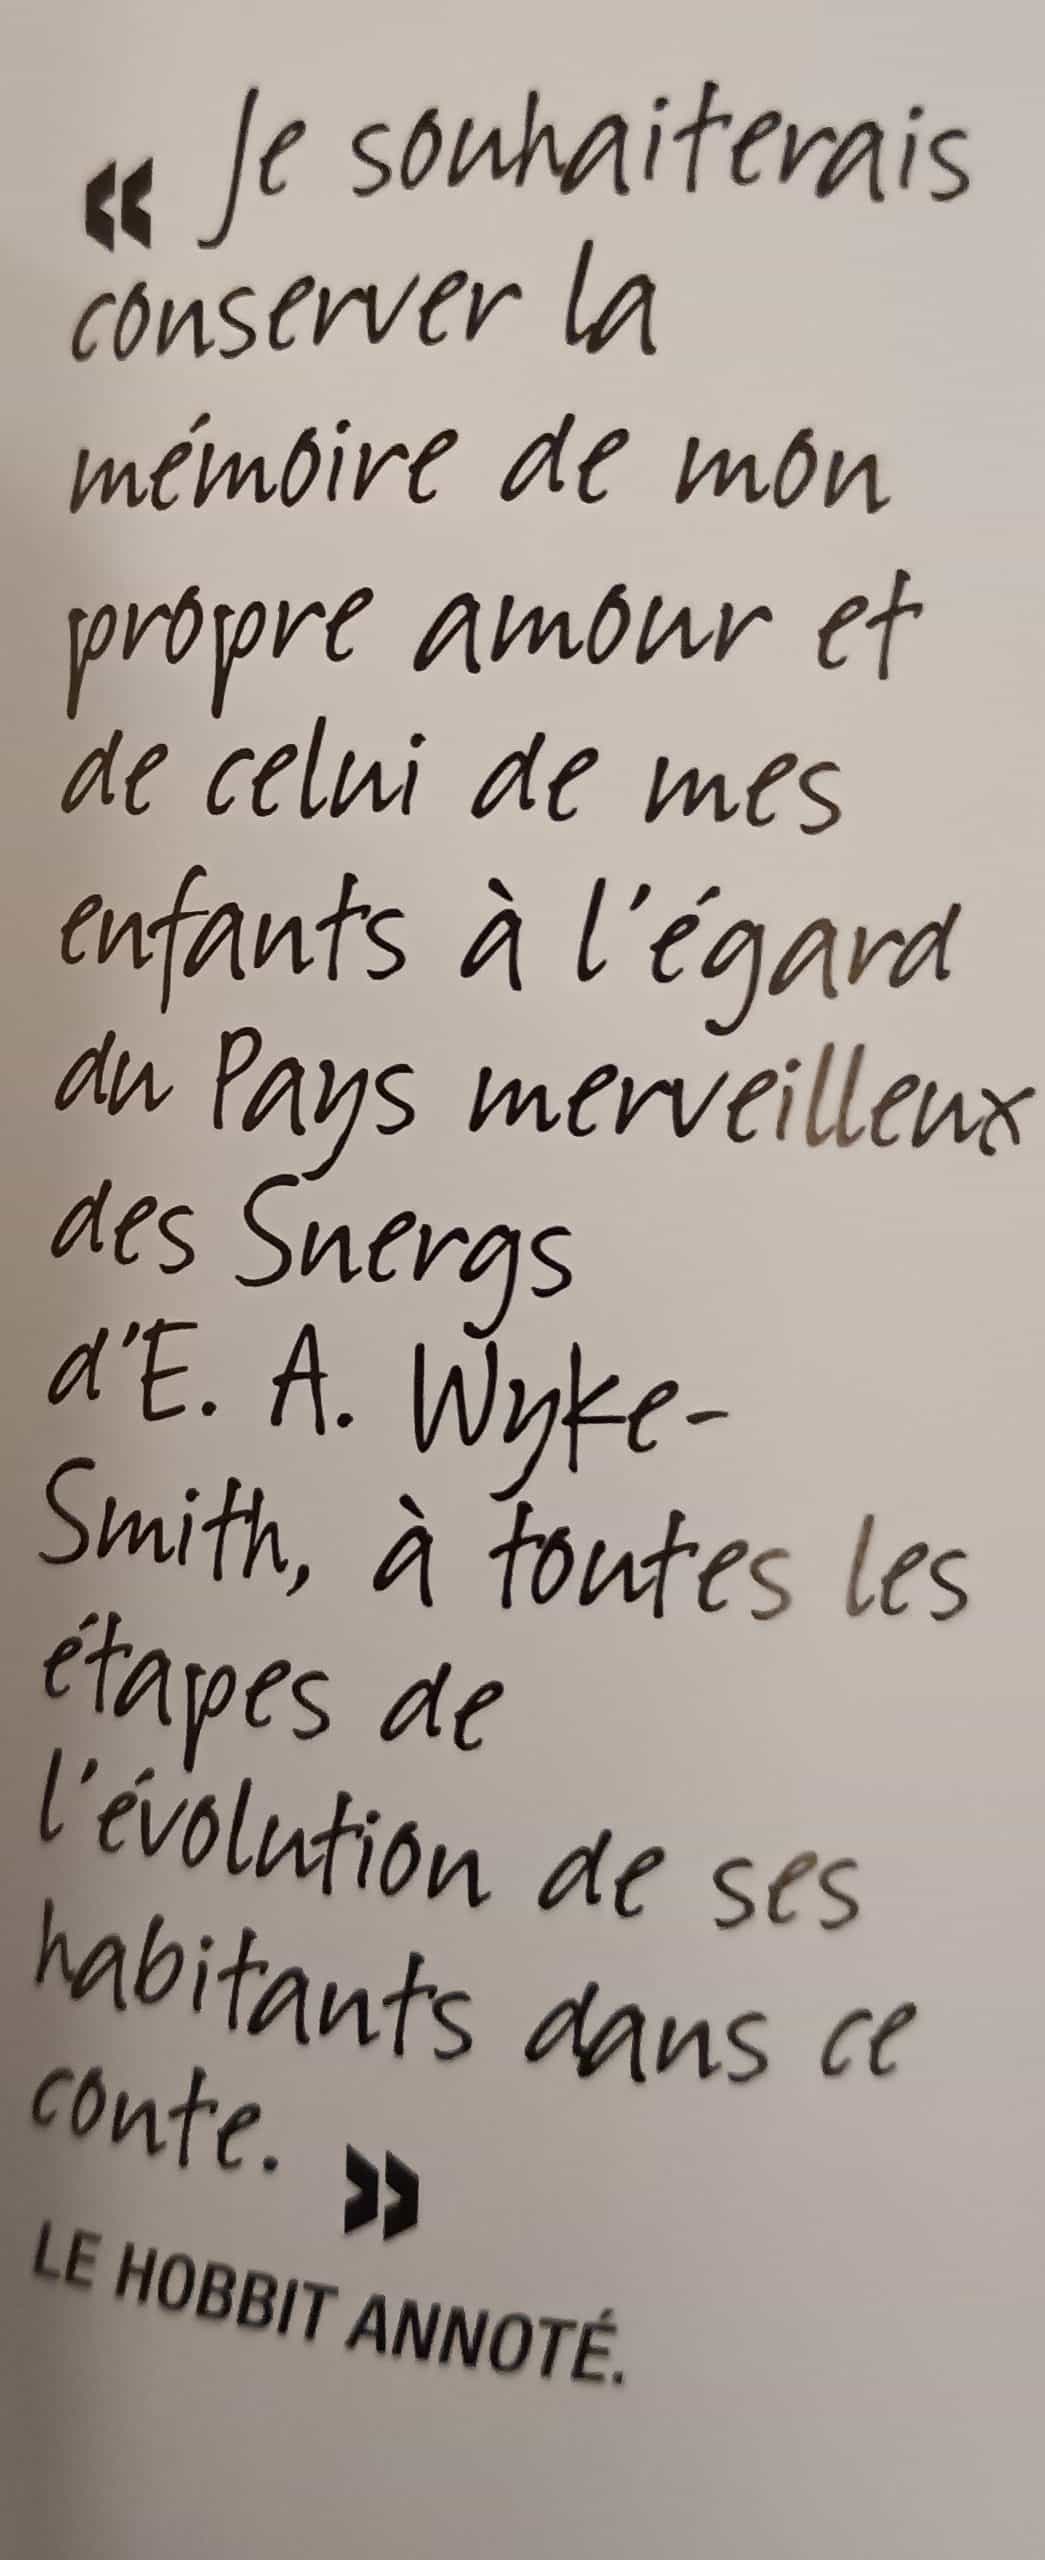 « Je souhaiterais
conserver la
mémoire de mon
propre amour et
de celui de mes
enfants à l'égard
du Pays merveilleux
des Snergs
d'E. A. Wyke-
Smith, à toutes les
étapes de
l'évolution de ses
habitants dans ce
conte. »
LE HOBBIT ANNOTÉ.